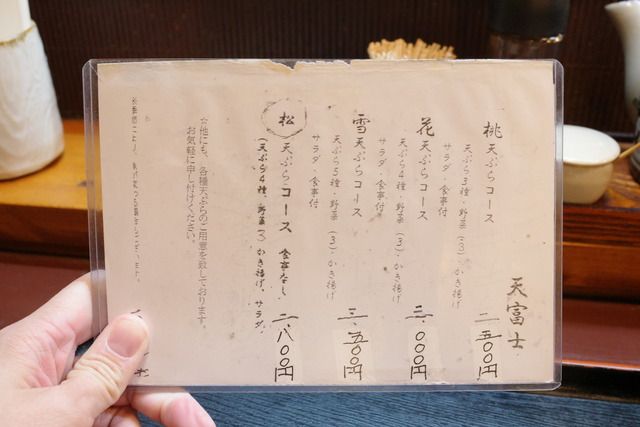 天富士
桃 天ぷらコース 二、五〇〇円
天ぷら3種・野菜(3)・かき揚げ
サラダ・食事付
花 天ぷらコース 三、〇〇〇円
天ぷら4種・野菜(3)・かき揚げ
サラダ・食事付
雪 天ぷらコース 三、五〇〇円
天ぷら5種・野菜(3)・かき揚げ
サラダ・食事付
松 天ぷらコース 食事なし 二、八〇〇円
(天ぷら4種、野菜(3)かき揚げ、サラダ、
☆他にも、各種天ぷらのご用意を致しております。
お気軽に申し付けください。
※季節により、
ございます。